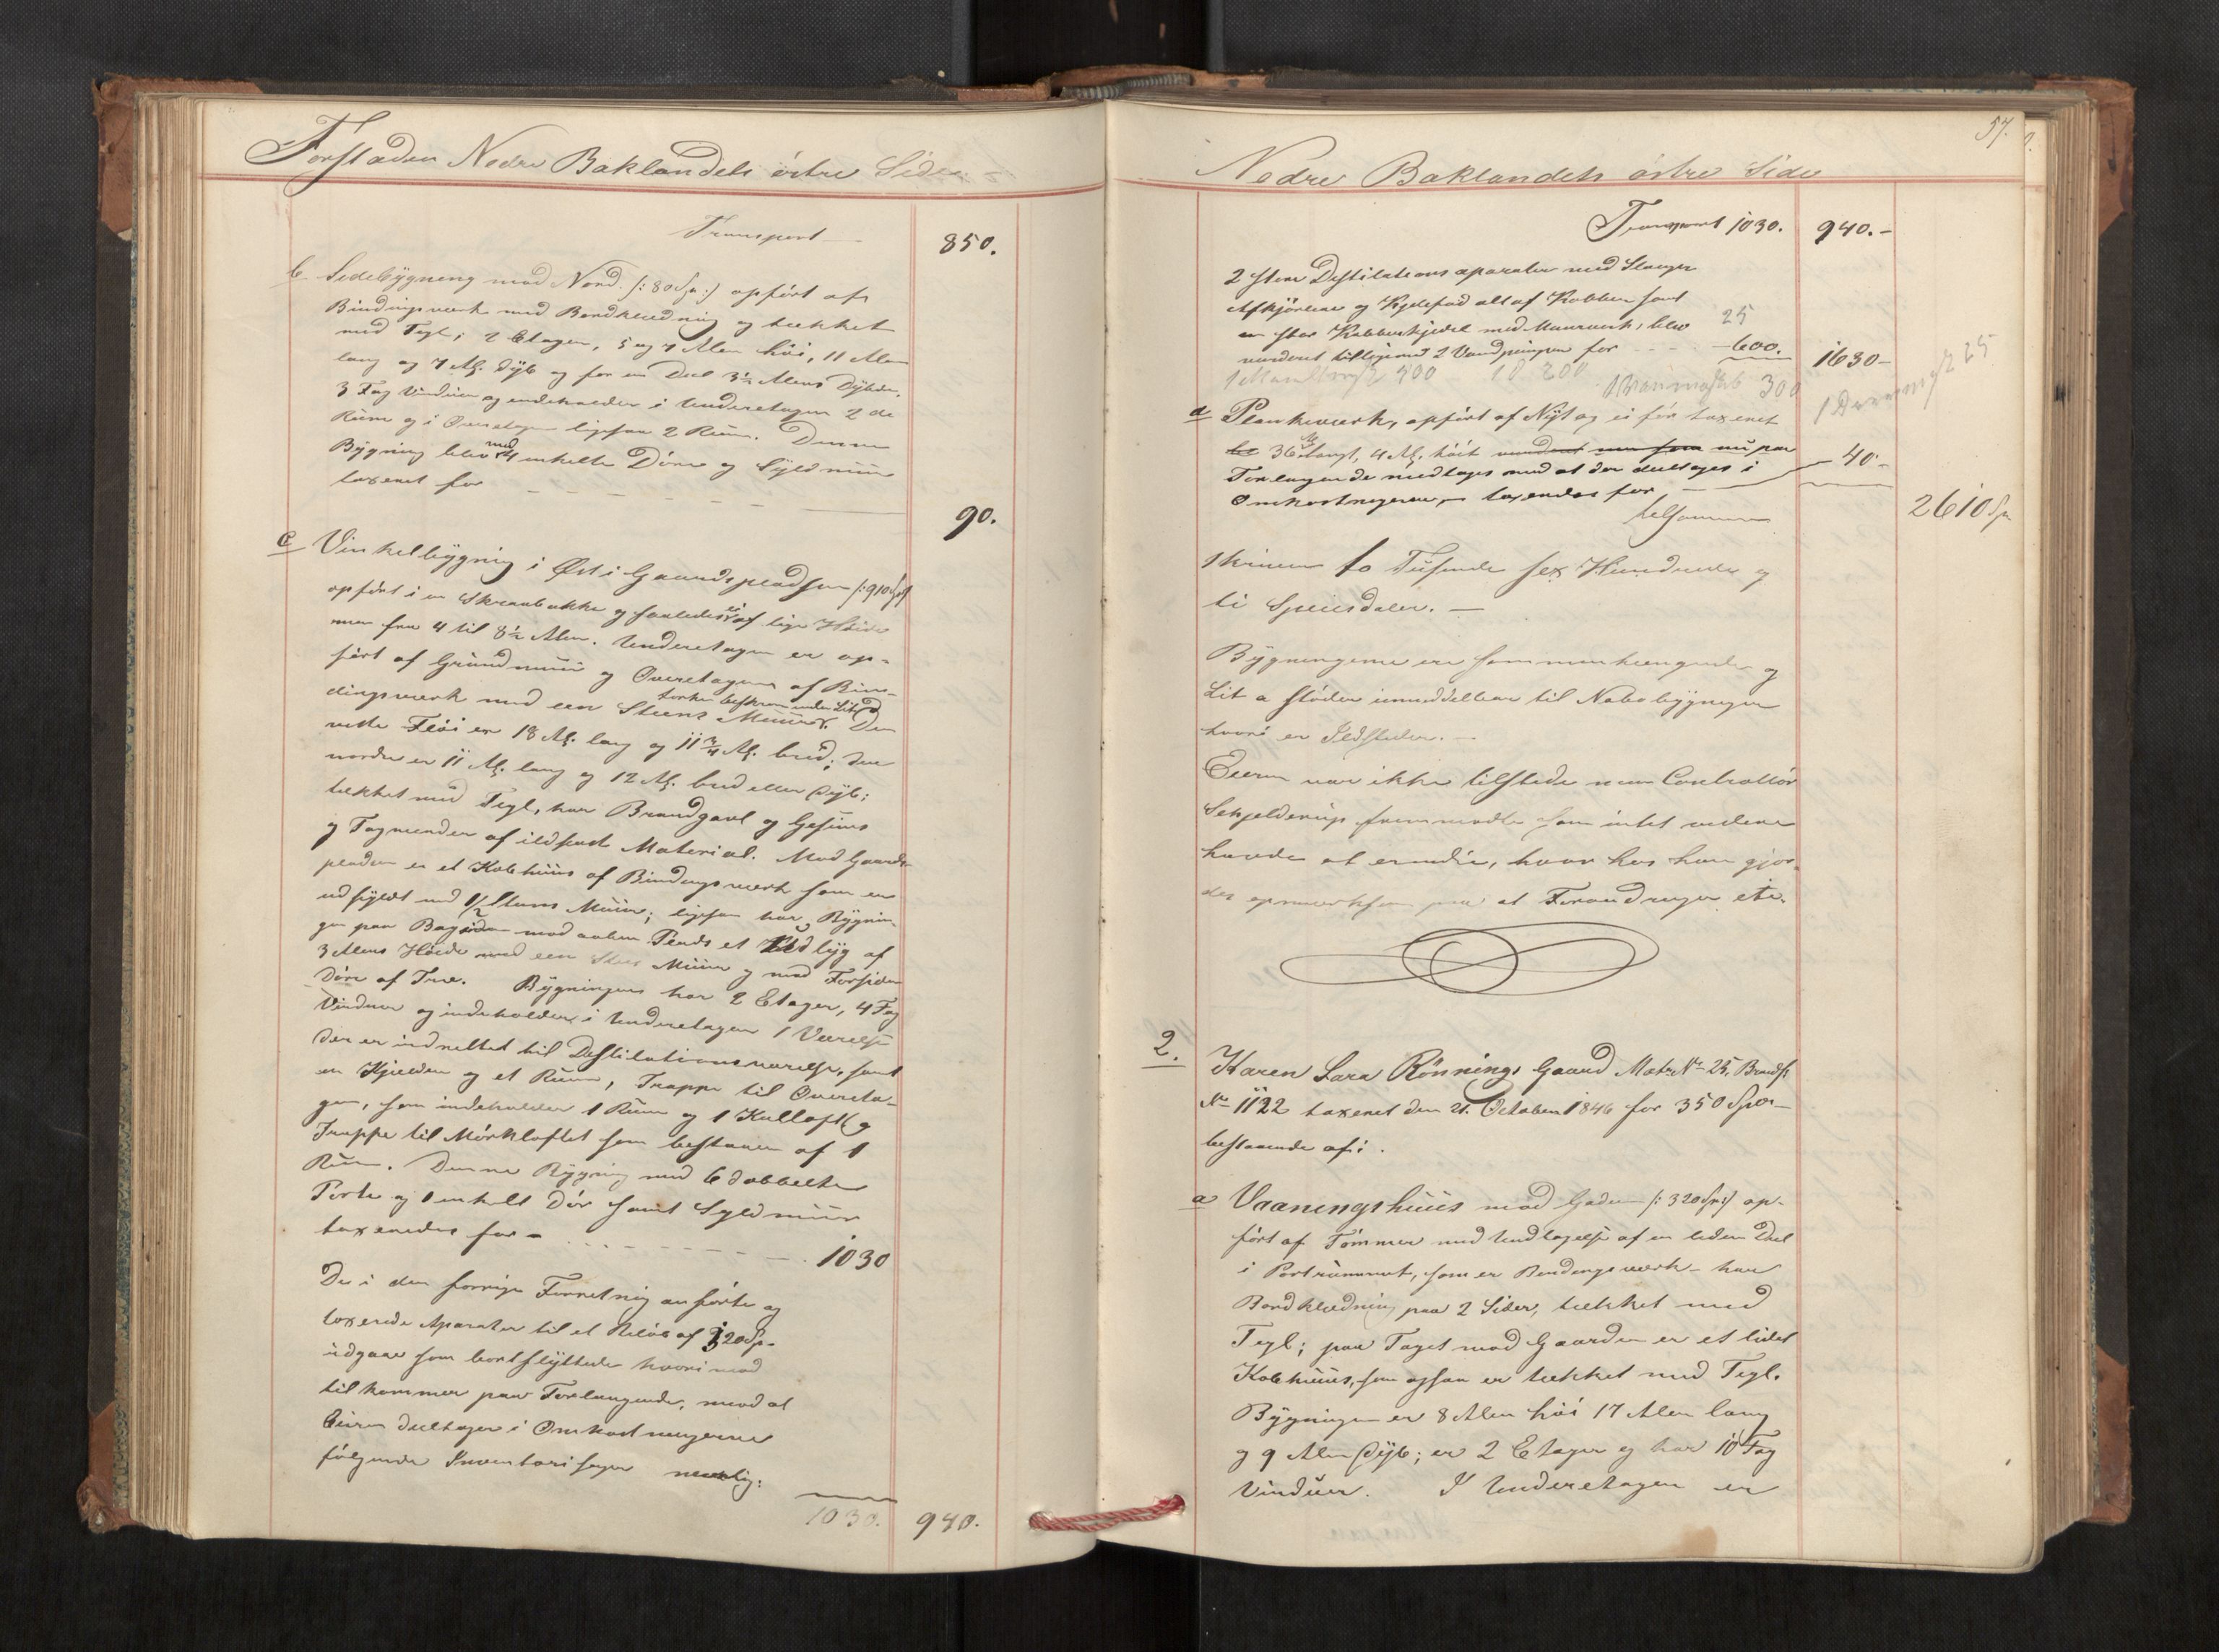 Forstaden Nedre Baklandets östre Side
Transport 850.
b Sidebygning mod Nord /: 80 Sp :/ opfört af
Bindingsværk med Bordklædning og tækket
med Tegl; 2 Etager, 5 og 7 Alen höi, 11 Alen
lang og 7 Al. dyb og for en Deel 3½ Alens Dybde,
3 Fag Vinduer og indeholder i Underetagen 2 de
Rum og i Overetagen ligesaa 2 Rum. Denne
Bygning blev med 4 enkelte Döre og Syldmuur
taxeret for 90.
c Vinkelbygning i Öst i Gaardspladsen /: 910 Sp :/
opfört i en Skraabakke og saaledes ei af lige Höide
men fra 4 til 8½ Alen. Underetagen er op-
fört af Grundmuur og Overetagen af Bin-
dingsværk med een Steens Muur. Den
vestre Flöi er 18 Al. lang og 11¾ Al. bred; den
nordre er 11 Al. lang og 12 Al. bred eller dyb;
tækket med Tegl, har Brandgavl og Gesims
og Tagrender af ildfast Material. Mod Gaards-
pladsen er et Kobhuus af Bindingsværk som er
udfyldt med ½ Steens Muur; ligesaa har Bygnin-
gen paa Bagsiden mod aaben Plads et Udbyg af
3 Alens Höide med een Steens Muur og mod Forsiden
Döre af Træ. Bygningen har 2 Etager, 4 Fag
Vinduer og indeholder i Underetagen 1 Værelse
der er indrettet til Destilationsværelse, samt
en Kjelder og et Rum, Trappe til Overeta-
gen, som indeholder 1 Rum og 1 Kulloft og
Trappe til Mörkloftet som bestaaer af 1
Rum. Denne Bygning med 6 dobbelte
Porte og 1 enkelt Dör samt Syldmuur
taxeredes for 1030
De i den forrige Forretning anförte og
taxerede Aparater til et Belöb af 320 Sp.
udgaar som bortflyttede hvorimod
tilkommer paa Forlangende, mod at
Eieren deeltager i Omkostningerne
fölgende Inventariesager nemlig:
1030. 940.
57.
Nedre Baklandets östre Side
Transport 1030. 940.-
2 store Destilationsaparater med Slanger
Afkjölere og Kjelefad alt af Kobber samt
en stor Kobberkjedel med Muurværk, blev 25
vurderet tilligemed 2 Vandpumper for 600. 1630-
400 200 300
25
d Plankeværk, opfört af Nyt og ei för taxeret
36 Al. langt, 4 Al. höit nu paa
Forlangende medtages mod at der deeltages i
Omkostningerne, taxeredes for 40-
tilsammen 2610 Sp
skriver to Tusinde sex Hundrede og
ti Speciesdaler.
Bygningerne ere sammenhængende og
Lit a stöder umiddelbar til Nabobygningen
hvori er Ildsteder.
Eieren var ikke tilstede men Controllör
Schjelderup fremmödte som intet videre
havde at erindre, hvorhos han gjor-
des opmærksom paa at Forandringer etc.
2. Karen Lara Rönnings Gaard Matr. No 25, Brandf.
No 1122 taxeret den 21. October 1846 for 350 Spd
bestaaende af:
a Vaaningshuus mod Gaden /: 320 Sp :/ op-
fört af Tömmer med Undtagelse af en liden Deel
i Portrummet, som er Bindingsværk - har
Bordklædning paa 2 Sider, tækket med
Tegl; paa Taget mod Gaarden er et lidet
Kobhuus, som ogsaa er tækket med Tegl.
Bygningen er 8 Alen höi 17 Alen lang
og 9 Alen dyb; er 2 Etager og har 10 Fag
Vinduer. I Underetagen er